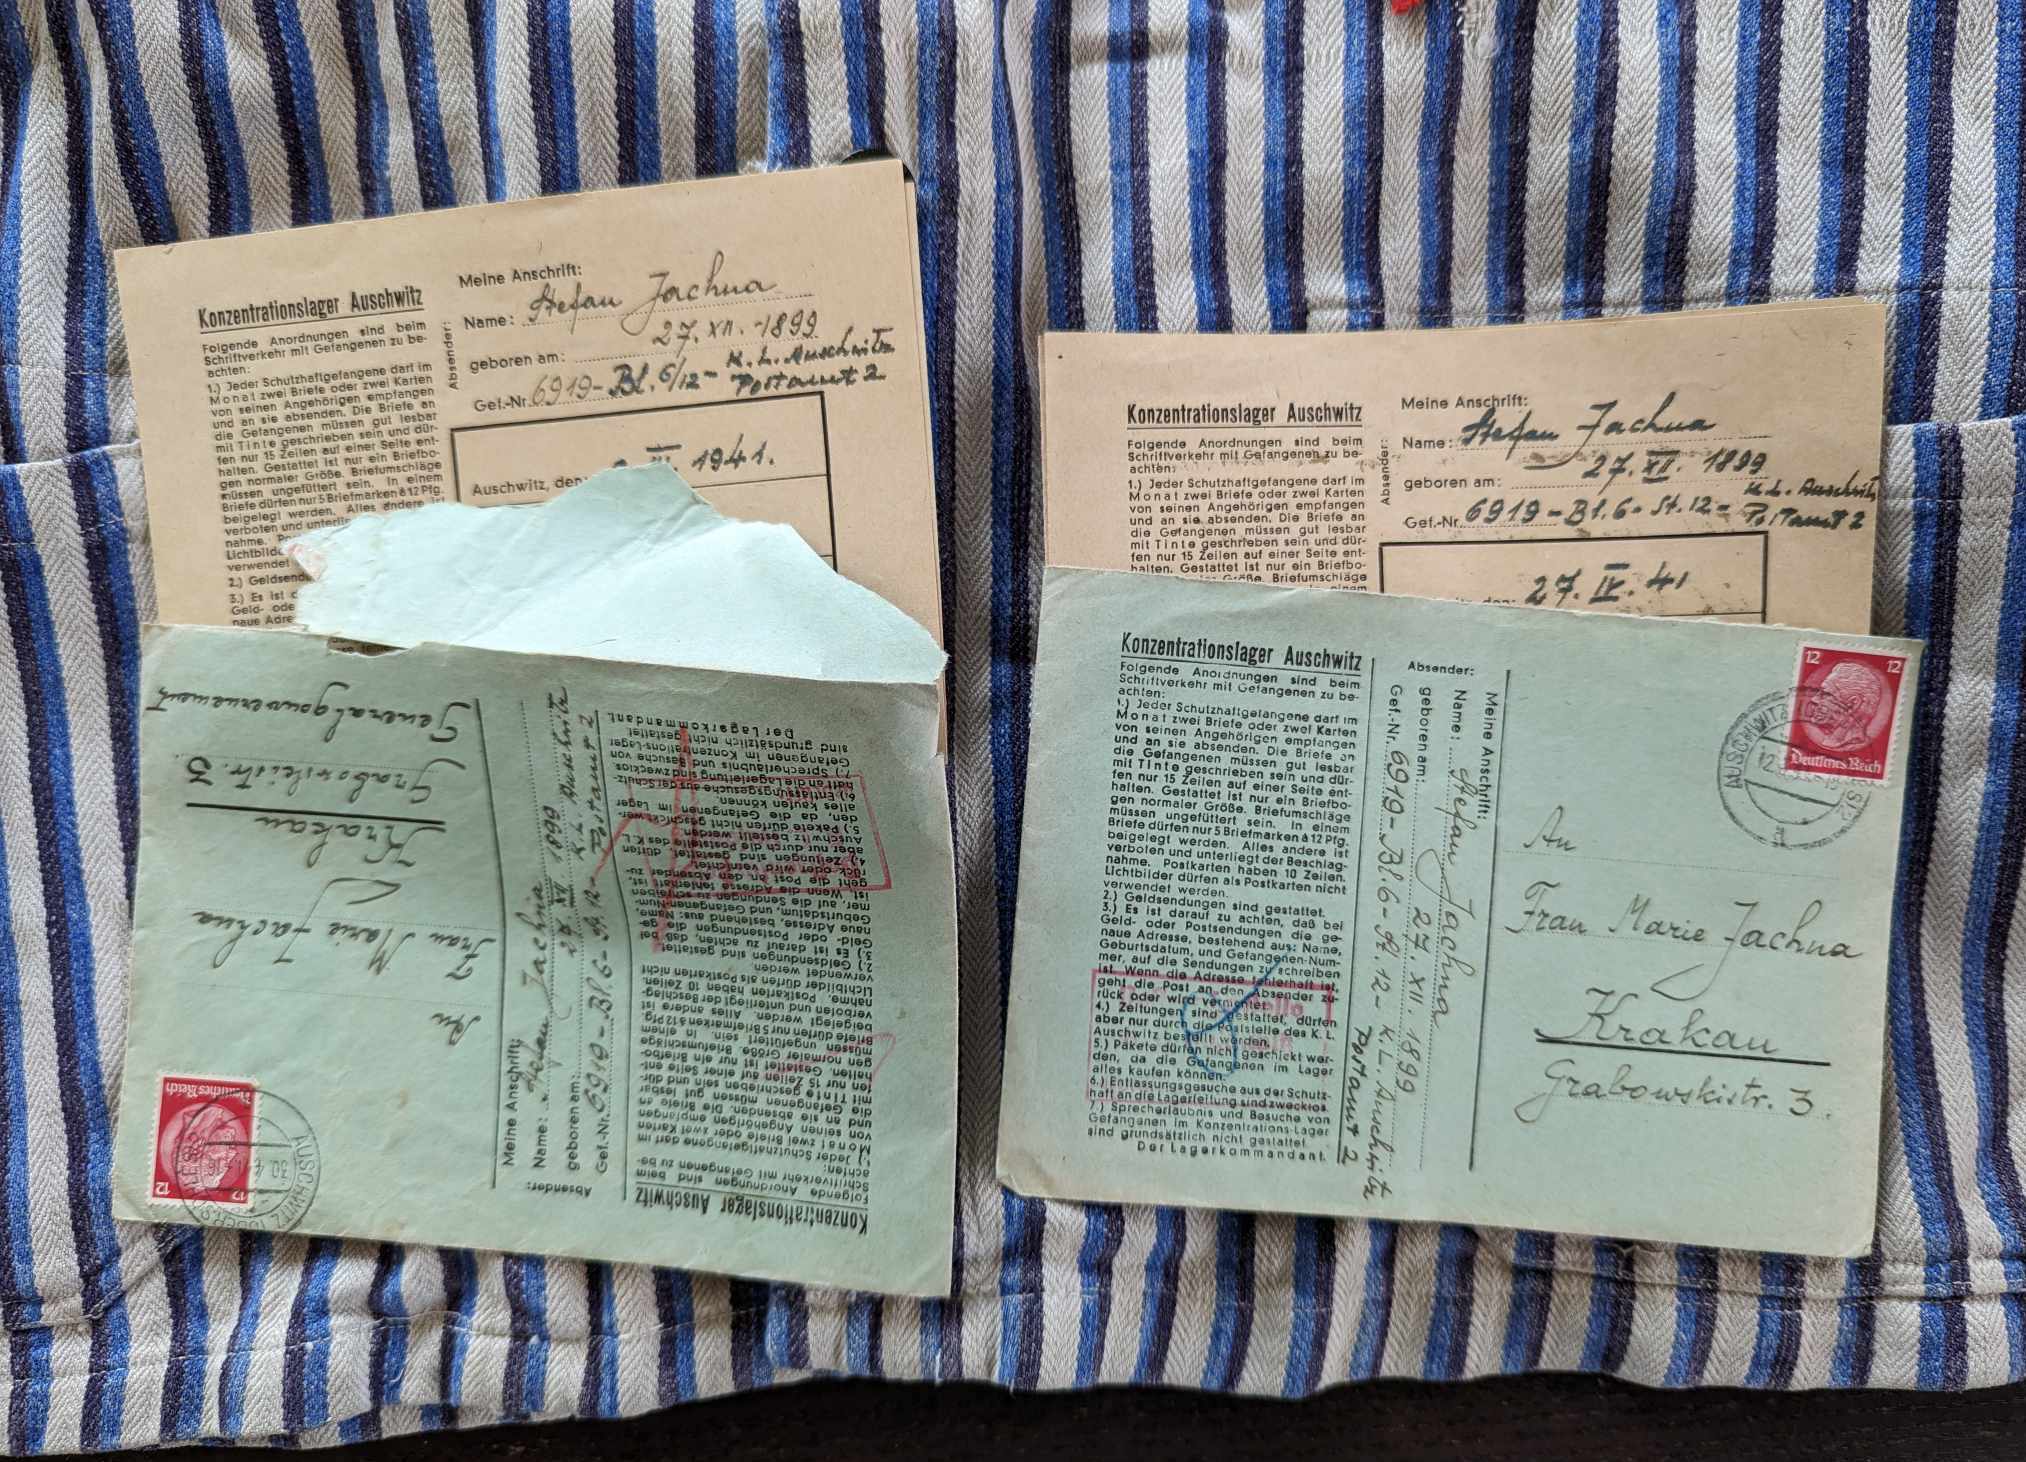 Konzentrationslager Auschwitz
Folgende Anordnungen sind beim
Schriftverkehr mit Gefangenen zu be-
achten:
1.) Jeder Schutzhaftgefangene darf im
Monat zwei Briefe oder zwei Karten
von seinen Angehörigen empfangen
und an sie absenden. Die Briefe an
die Gefangenen müssen gut lesbar
mit Tinte geschrieben sein und dür-
fen nur 15 Zeilen auf einer Seite ent-
halten. Gestattet ist nur ein Briefbo-
gen normaler Größe. Briefumschläge
müssen ungefüttert sein. In einem
Briefe dürfen nur 5 Briefmarken à 12 Pfg.
beigelegt werden. Alles andere ist
verboten und
nahme.
Lichtbilde
verwendet
2.) Geldsend
3.) Es ist d
Geld- ode
naue Adre
Absender:
Meine Anschrift:
Name: Stefan Jachna
geboren am: 27. XII. 1899
Gef.-Nr. 6919 - Bl. 6/12 - K. L. Auschwitz
Postamt 2
Auschwitz, den 1941.
An
Frau Marie Jachna
Krakau
Grabowskistr. 3
Generalgouvernement
Meine Anschrift:
Name: Stefan Jachna
geboren am: 27. XII 1899
Gef.-Nr. 6919 - Bl. 6 - St. 12 - K. L. Auschwitz
Postamt 2
Absender:
Konzentrationslager Auschwitz
Folgende Anordnungen sind beim
Schriftverkehr mit Gefangenen zu be-
achten:
1.) Jeder Schutzhaftgefangene darf im
Monat zwei Briefe oder zwei Karten
von seinen Angehörigen empfangen
und an sie absenden. Die Briefe an
die Gefangenen müssen gut lesbar
mit Tinte geschrieben sein und dür-
fen nur 15 Zeilen auf einer Seite ent-
halten. Gestattet ist nur ein Briefbo-
gen normaler Größe. Briefumschläge
müssen ungefüttert sein. In einem
Briefe dürfen nur 5 Briefmarken à 12 Pfg.
beigelegt werden. Alles andere ist
verboten und unterliegt der Beschlag-
nahme. Postkarten haben 10 Zeilen.
Lichtbilder dürfen als Postkarten nicht
verwendet werden.
2.) Geldsendungen sind gestattet.
3.) Es ist darauf zu achten, daß bei
Geld- oder Postsendungen die ge-
naue Adresse, bestehend aus: Name,
Geburtsdatum, und Gefangenen-Num-
mer, auf die Sendungen zu schreiben
ist. Wenn die Adresse fehlerhaft ist,
geht die Post an den Absender zu-
rück oder wird vernichtet.
4.) Zeitungen sind gestattet, dürfen
aber nur durch die Poststelle des K. L.
Auschwitz bestellt werden.
5.) Pakete dürfen nicht geschickt wer-
den, da die Gefangenen im Lager
alles kaufen können.
6.) Entlassungsgesuche aus der Schutz-
haft an die Lagerleitung sind zwecklos.
7.) Sprecherlaubnis und Besuche von
Gefangenen im Konzentrations-Lager
sind grundsätzlich nicht gestattet.
Der Lagerkommandant.
12 12
Deutsches Reich
AUSCHWITZ (OBERSCHLES)
Konzentrationslager Auschwitz
Folgende Anordnungen sind beim
Schriftverkehr mit Gefangenen zu be-
achten:
1.) Jeder Schutzhaftgefangene darf im
Monat zwei Briefe oder zwei Karten
von seinen Angehörigen empfangen
und an sie absenden. Die Briefe an
die Gefangenen müssen gut lesbar
mit Tinte geschrieben sein und dür-
fen nur 15 Zeilen auf einer Seite ent-
halten. Gestattet ist nur ein Briefbo-
Größe. Briefumschläge
einem
Absender:
Meine Anschrift:
Name: Stefan Jachna
geboren am: 27. XII. 1899
Gef.-Nr. 6919 - Bl. 6 - St. 12 - K. L. Auschwitz
Postamt 2
den: 27. IV. 41
Konzentrationslager Auschwitz
Folgende Anordnungen sind beim
Schriftverkehr mit Gefangenen zu be-
achten:
1.) Jeder Schutzhaftgefangene darf im
Monat zwei Briefe oder zwei Karten
von seinen Angehörigen empfangen
und an sie absenden. Die Briefe an
die Gefangenen müssen gut lesbar
mit Tinte geschrieben sein und dür-
fen nur 15 Zeilen auf einer Seite ent-
halten. Gestattet ist nur ein Briefbo-
gen normaler Größe. Briefumschläge
müssen ungefüttert sein. In einem
Briefe dürfen nur 5 Briefmarken à 12 Pfg.
beigelegt werden. Alles andere ist
verboten und unterliegt der Beschlag-
nahme. Postkarten haben 10 Zeilen.
Lichtbilder dürfen als Postkarten nicht
verwendet werden.
2.) Geldsendungen sind gestattet.
3.) Es ist darauf zu achten, daß bei
Geld- oder Postsendungen die ge-
naue Adresse, bestehend aus: Name,
Geburtsdatum, und Gefangenen-Num-
mer, auf die Sendungen zu schreiben
ist. Wenn die Adresse fehlerhaft ist,
geht die Post an den Absender zu-
rück oder wird vernichtet.
4.) Zeitungen sind gestattet, dürfen
aber nur durch die Poststelle des K. L.
Auschwitz bestellt werden.
5.) Pakete dürfen nicht geschickt wer-
den, da die Gefangenen im Lager
alles kaufen können.
6.) Entlassungsgesuche aus der Schutz-
haft an die Lagerleitung sind zwecklos.
7.) Sprecherlaubnis und Besuche von
Gefangenen im Konzentrations-Lager
sind grundsätzlich nicht gestattet.
Der Lagerkommandant.
Absender:
Meine Anschrift:
Name: Stefan Jachna
geboren am: 27. XII. 1899
Gef.-Nr. 6919 - Bl. 6 - St. 12 - K. L. Auschwitz
Postamt 2
An
Frau Marie Jachna
Krakau
Grabowskistr. 3.
12 12
Deutsches Reich
AUSCHWITZ